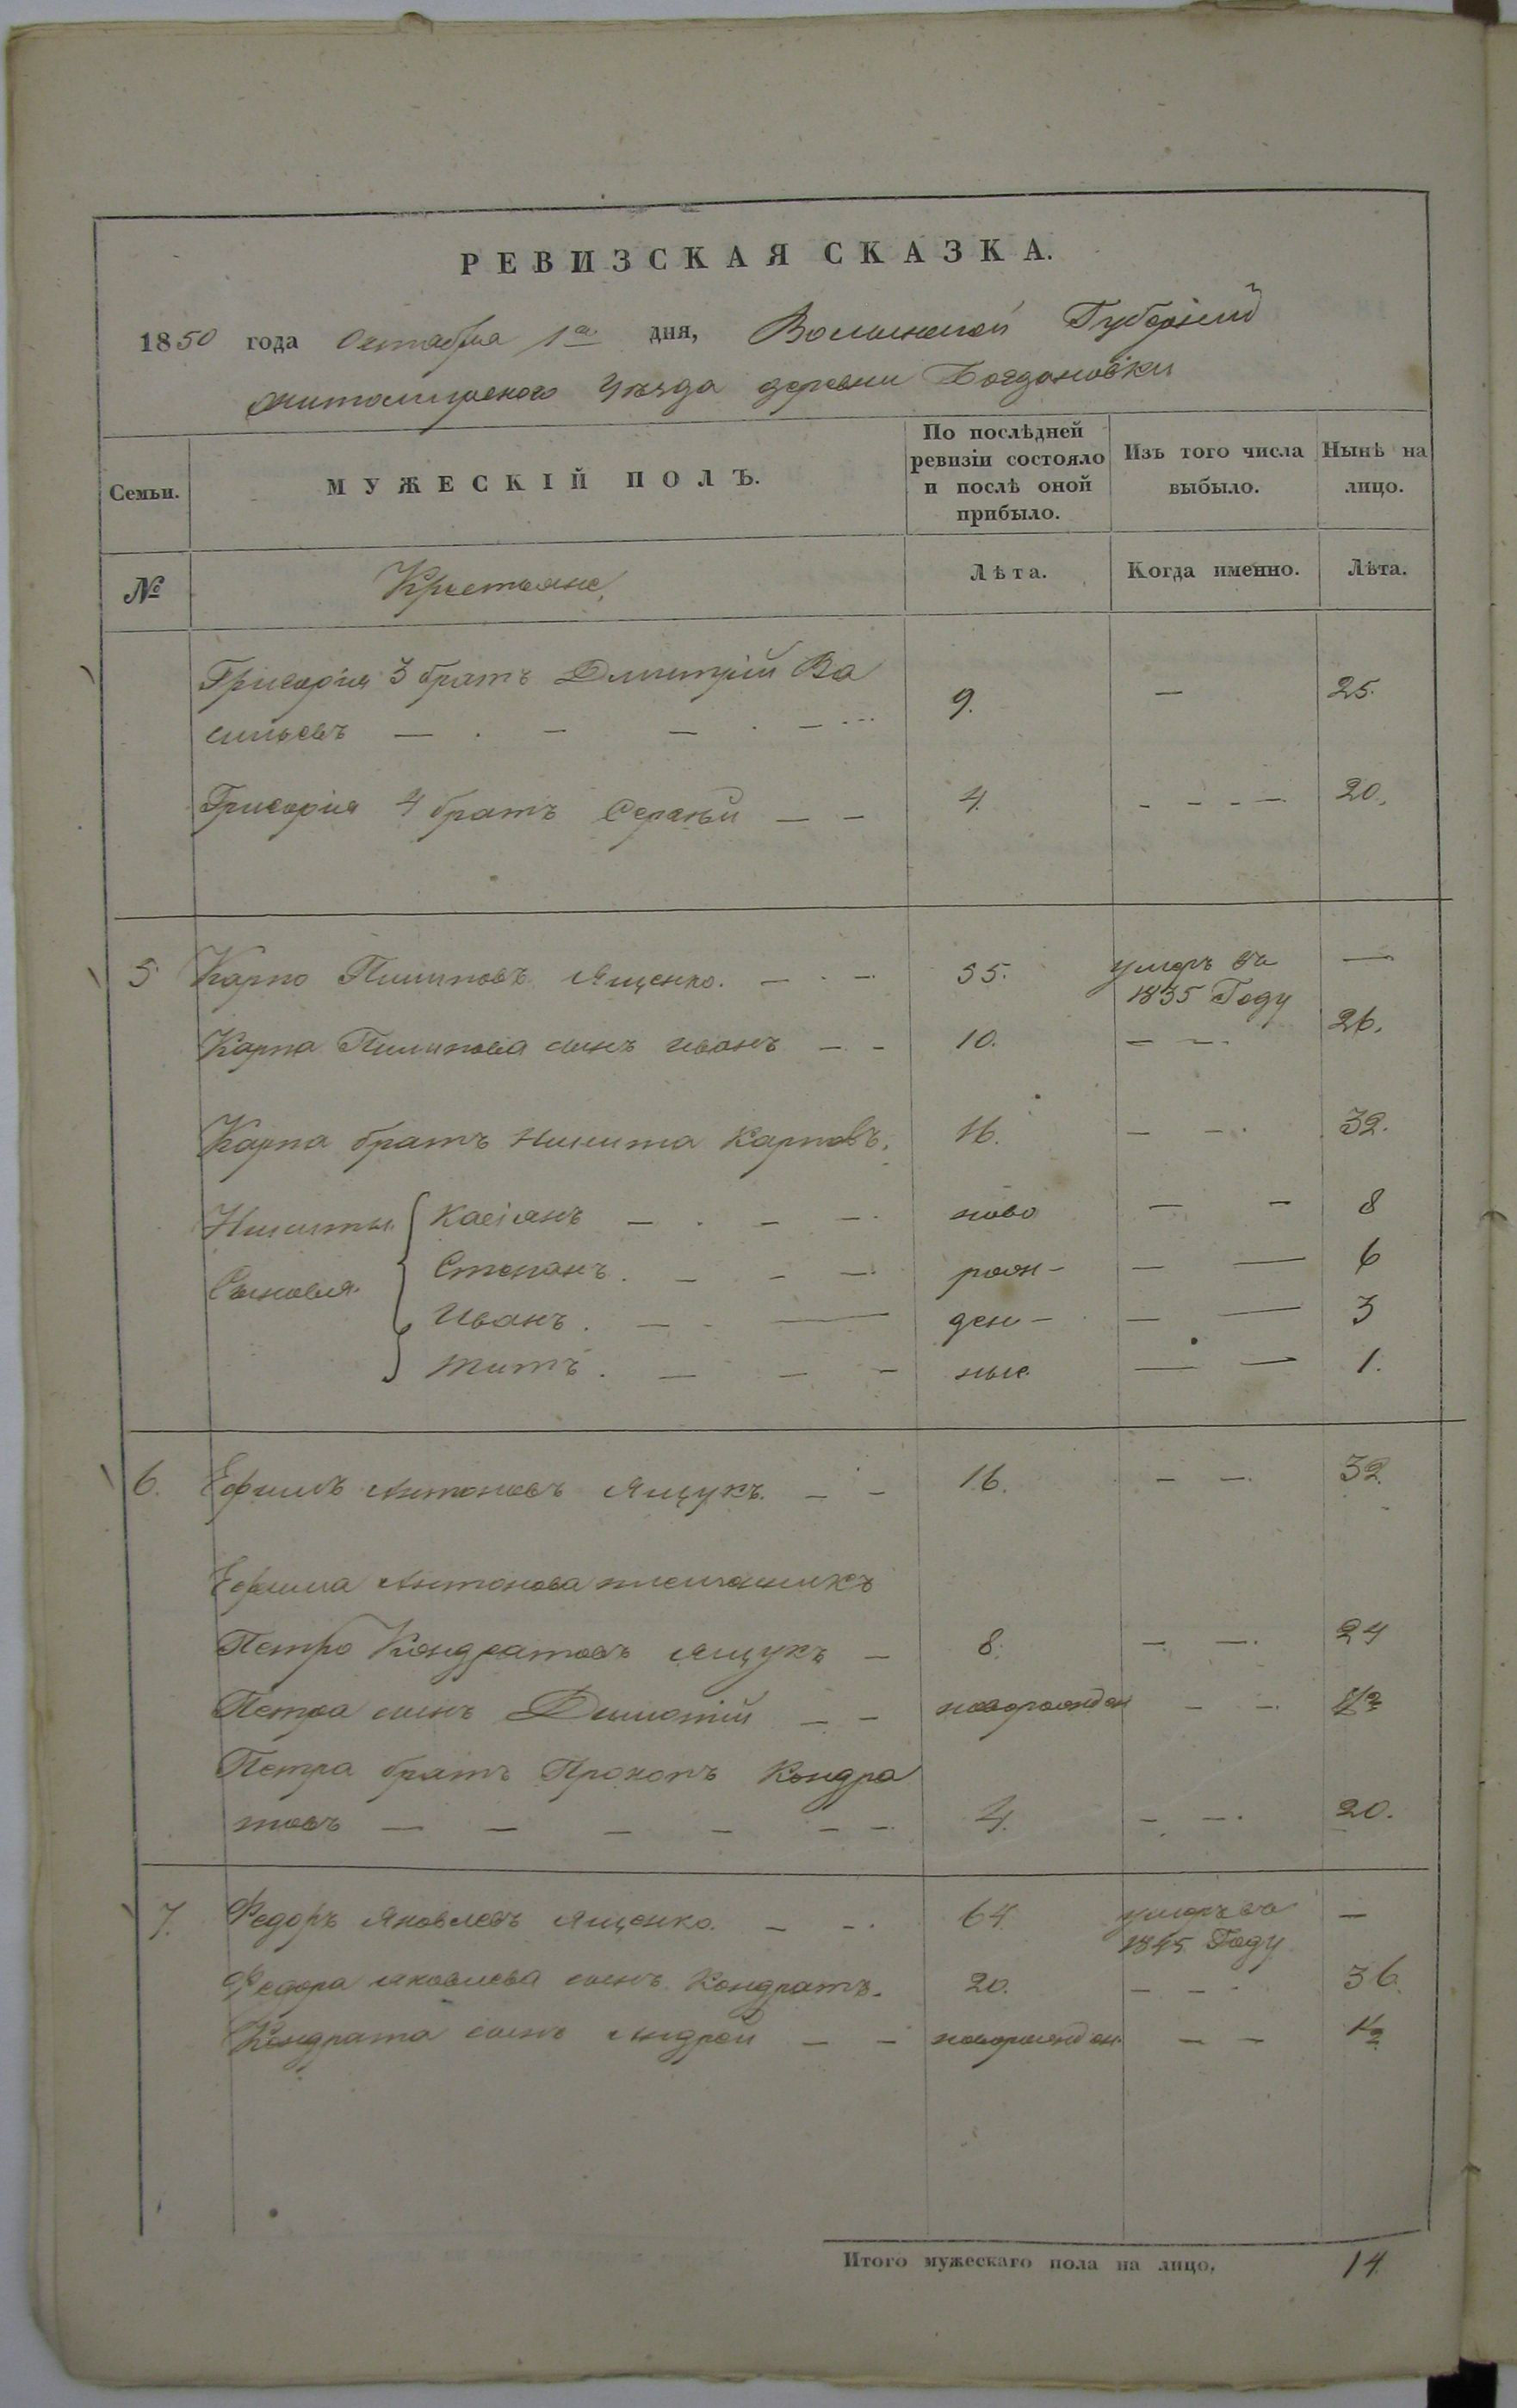 РЕВИЗСКАЯ СКАЗКА.
1850 года Октября 1го дня, Волынской Губерніи
Житомирского Уѣзда деревни Богдановки
Семьи. МУЖЕСКІЙ ПОЛЪ. По послѣдней ревизіи состояло и послѣ оной прибыло. Изъ того числа выбыло. Нынѣ на лицо.
№ Крестьяне, Лѣта. Когда именно. Лѣта.
Григорія 3 братъ Дмитрій Ва
сильевъ — 9. — 25.
Григорія 4 братъ Сергѣй — 4. — 20.
5 Карпо Пилиповъ Ященко. — 55. умеръ въ 1835 Году —
Карпа Пилипова сынъ Иванъ — 10. — 26.
Карпа братъ Никита Карповъ. 16. — 32.
Никиты Сыновья
Касіянъ — ново — 8
Степанъ. — рож- — 6
Иванъ. — ден- — 3
Титъ. — ные — 1.
6. Ефимъ Антоновъ Ящукъ. — 16. — 32.
Ефима Антонова племянникъ
Петро Кондратовъ Ящукъ — 8. — 24
Петра сынъ — новорожден — 1/2
Петра братъ Прокопъ Кондра
товъ — 4. — 20.
7. Федоръ Яковлевъ Ященко. — 64. умеръ въ 1845 Году —
Федора Яковлева сынъ Кондратъ. 20. — 36.
Кондрата сынъ Андрей — новорожден. — 1/2
Итого мужескаго пола на лицо, 14